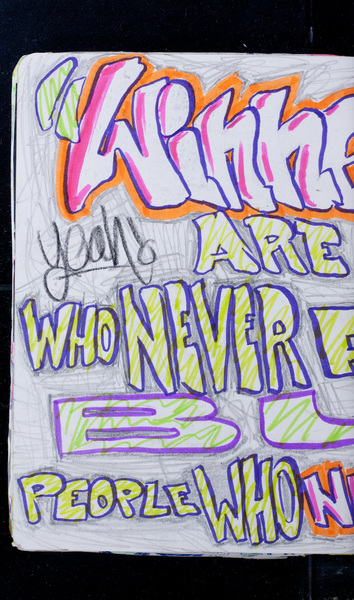 "Winne
yeah! ARE
WHO NEVER F
BU
PEOPLE WHO N